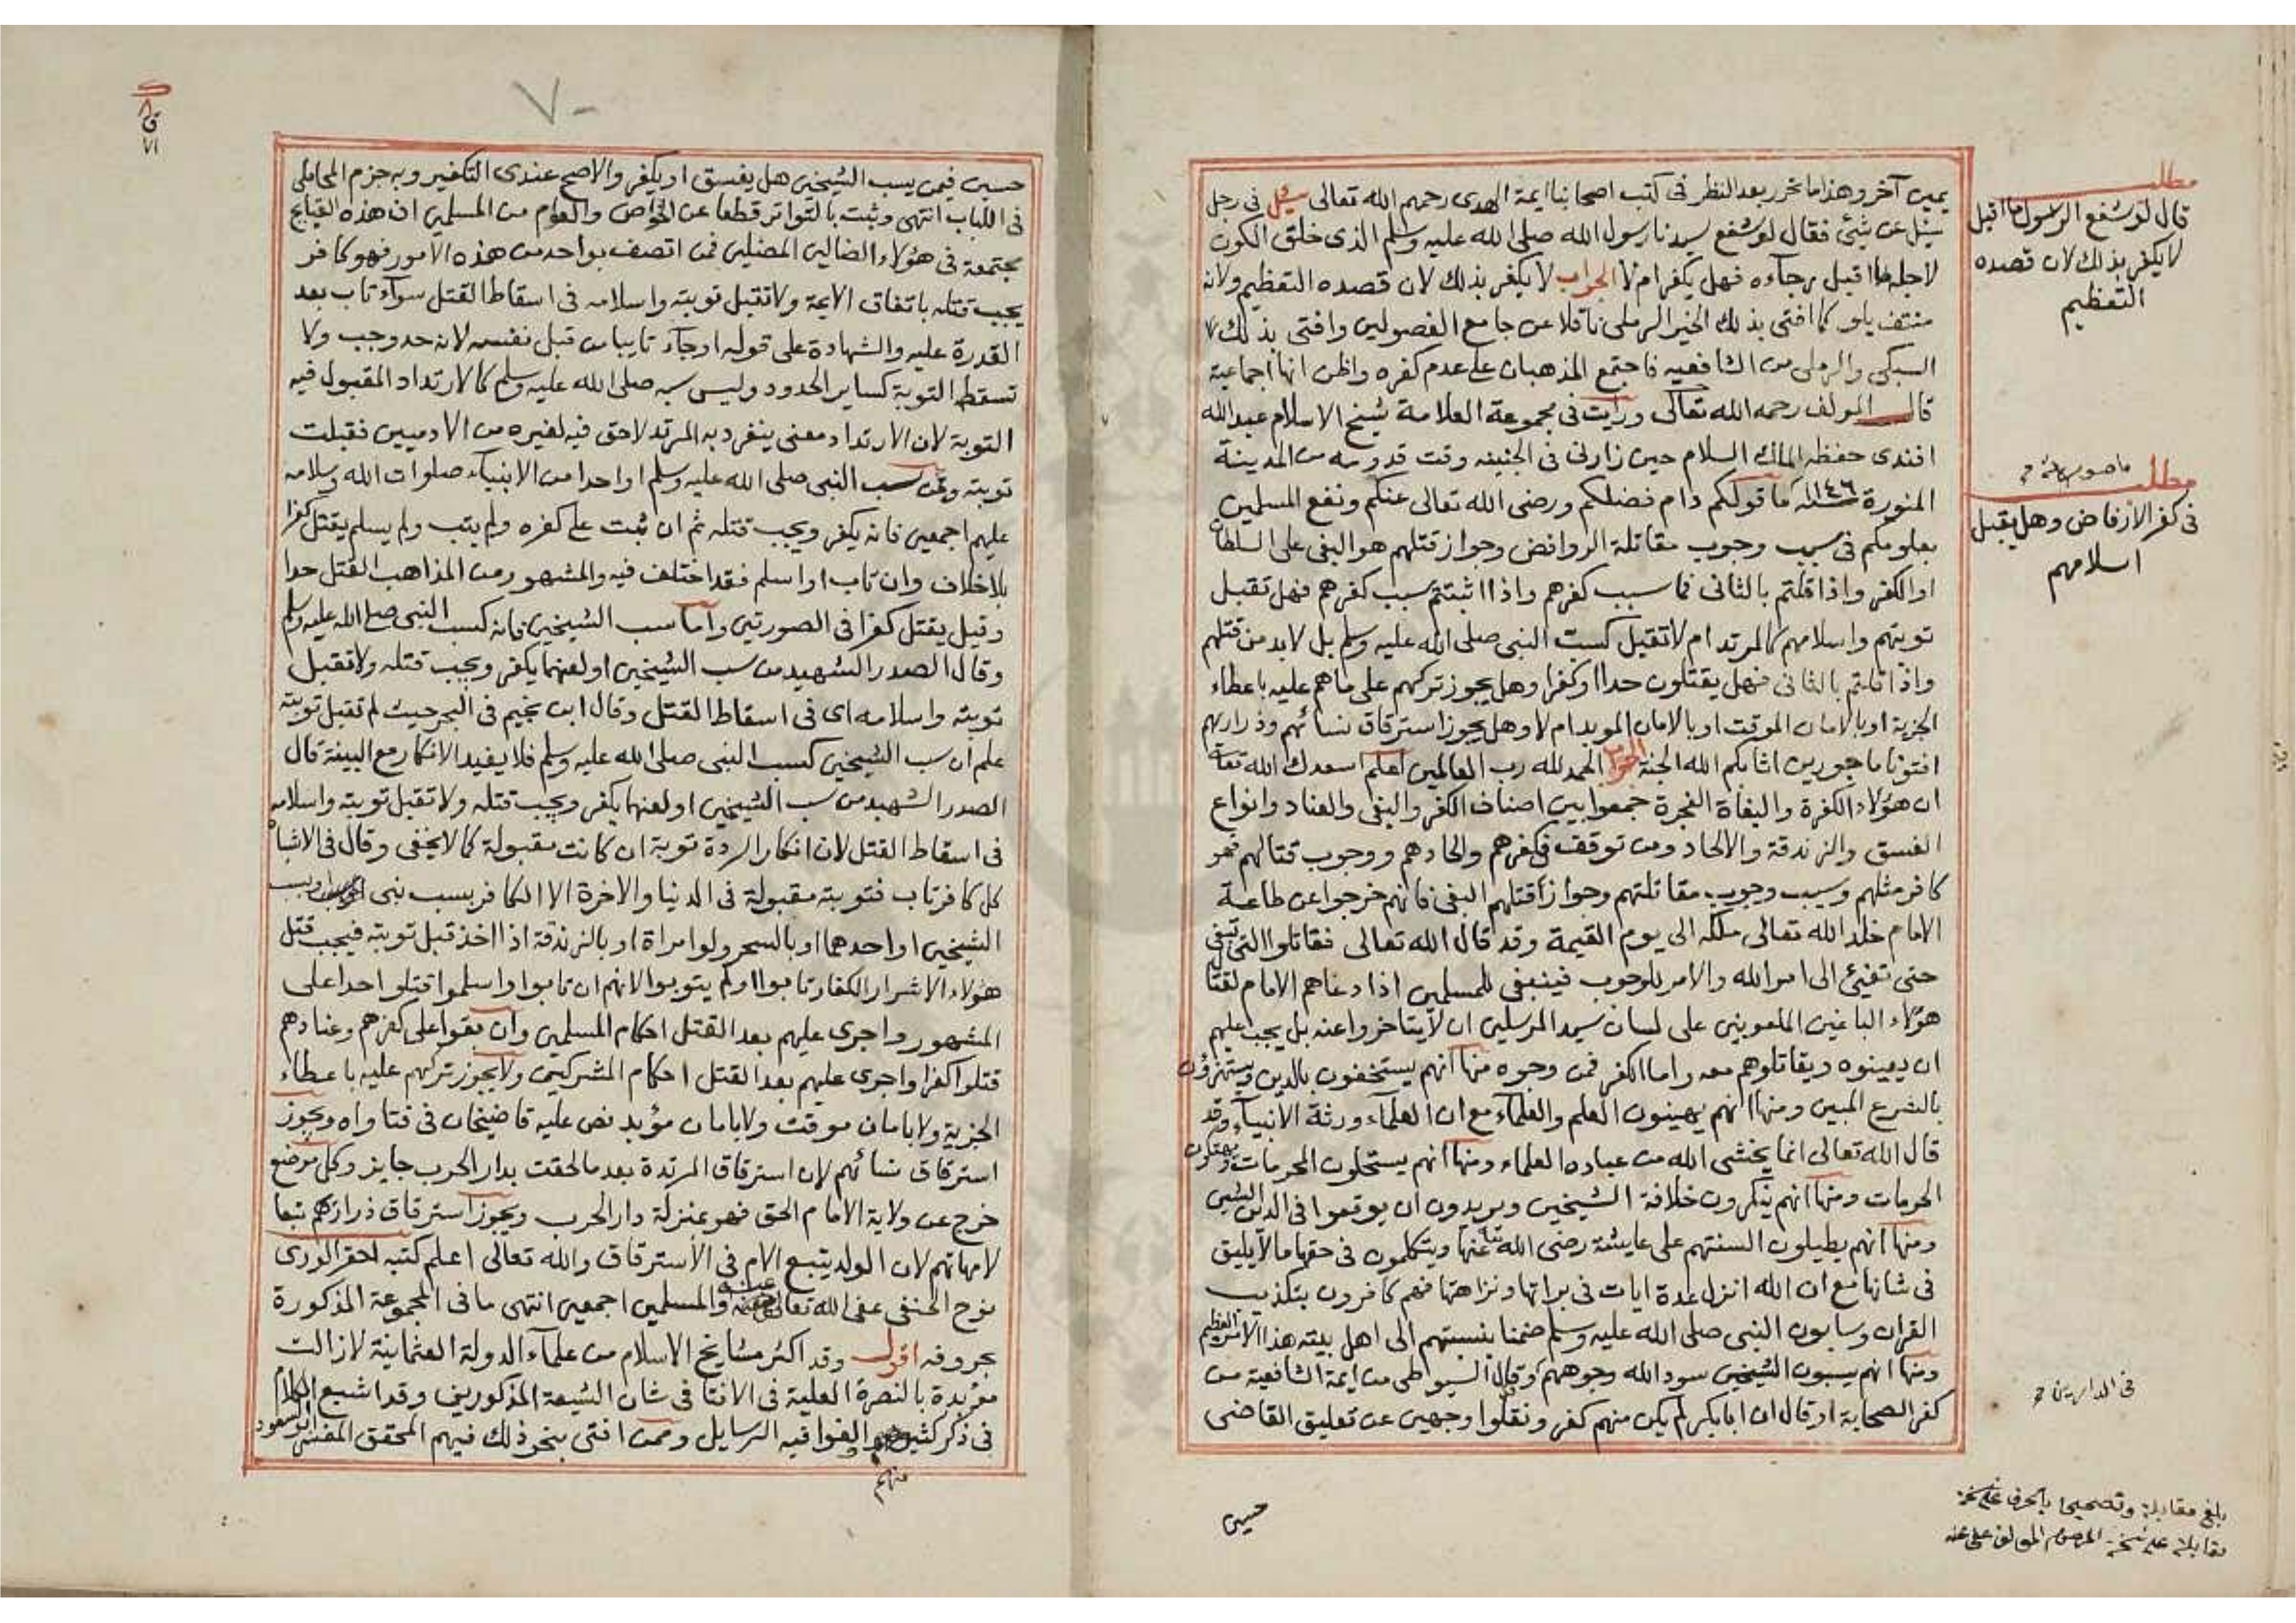 مطلب
قال لو شفع الرسول ما اقبل
لا يكفر بذلك لان قصده
التعظيم
يمين آخر وهذا ما تحرر بعد النظر فى كتب اصحابنا ايمة الهدى رحمهم الله تعالى سئل فى رجل
سئل عن شيئ فقال لو شفع سيدنا رسول الله صلى الله عليه وسلم الذى خلق الكون
لاجله ما اقبل رجآءه فهل يكفر ام لا الجواب لا يكفر بذلك لان قصده التعظيم ولانه
منتف بلو كما افتى بذلك الخير الرملى ناقلا عن جامع الفصولين وافتى بذلك
السبكى والرملى من الشافعيه فاجتمع المذهبان على عدم كفره واظن انها اجماعية
قال المولف رحمه الله تعالى ورايت فى مجموعة العلامة شيخ الاسلام عبد الله
افندى حفظه الملك السلام حين زارنى فى الجنينه وقت قدومه من المدينة
المنورة ١١٤٦ ما قولكم دام فضلكم ورضى الله تعالى عنكم ونفع المسلمين
بعلومكم فى سبب وجوب مقاتلة الروافض وجواز قتلهم هو البغى على السلطان
او الكفر واذا قلتم بالثانى فما سبب كفرهم واذا اثبتتم سبب كفرهم فهل تقبل
توبتهم واسلامهم كالمرتد ام لا تقبل كسب النبى صلى الله عليه وسلم بل لا بد من قتلهم
واذا قلتم بالثانى فهل يقتلون حدا او كفرا وهل يجوز تركهم على ما هم عليه باعطاء
الجزية او بالامان الموقت او بالامان المويد ام لا وهل يجوز استرقاق نسائهم وذراريهم
افتونا ماجورين اثابكم الله الجنة الجواب الحمد لله رب العالمين اعلم اسعدك الله تعالى
ان هؤلاء الكفرة والبغاة الفجرة جمعوا بين اصناف الكفر والبغى والعناد وانواع
الفسق والزندقة والالحاد ومن توقف فى كفرهم والحادهم ووجوب قتالهم فهو
كافر مثلهم وسبب وجوب مقاتلتهم وجواز قتلهم البغى فانهم خرجوا عن طاعة
الامام خلد الله تعالى ملكه الى يوم القيمة وقد قال الله تعالى فقاتلوا التى تبغى
حتى تفيئ الى امر الله والامر للوجوب فينبغى للمسلمين اذا دعاهم الامام لقتال
هؤلاء الباغين الملعونين على لسان سيد المرسلين ان لا يتاخروا عنه بل يجب عليهم
ان يعينوه ويقاتلوهم معه واما الكفر فمن وجوه منها انهم يستخفون بالدين ويستهزؤن
بالشرع المبين ومنها انهم يهينون العلم والعلمآء مع ان العلمآء ورثة الانبيآء وقد
قال الله تعالى انما يخشى الله من عباده العلماء ومنها انهم يستحلون المحرمات ويهتكون
الحرمات ومنها انهم ينكرون خلافة الشيخين ويريدون ان يوقعوا فى الدين الشين
ومنها انهم يطيلون السنتهم على عايشة رضى الله تعا عنها ويتكلمون فى حقها ما لا يليق
فى شانها مع ان الله انزل عدة ايات فى براتها ونزاهتها فهم كافرون بتكذيب
القران وسابون النبى صلى الله عليه وسلم ضمنا بنسبتهم الى اهل بيته هذا الامر العظيم
ومنها انهم يسبون الشيخين سود الله وجوههم وقال السيوطى من ايمة الشافعية من
كفر الصحابة او قال ان ابا بكر لم يكن منهم كفر ونقلوا وجهين عن تعليق القاضى
مطلب
فى كفر الأرفاض وهل يقبل
اسلامهم
فى الدارين
بلغ مقابلة وتصحيحا
حسين
٧٠
٧١
حسين فيمن يسب الشيخين هل يفسق او يكفر والاصح عندى التكفير وبه جزم المحاملى
فى اللباب انتهى وثبت بالتواتر قطعا عن الخواص والعوام من المسلمين ان هذه القبايح
مجتمعة فى هؤلاء الضالين المضلين فمن اتصف بواحد من هذه الامور فهو كافر
يجب قتله باتفاق الايمة ولا تقبل توبته واسلامه فى اسقاط القتل سوآء تاب بعد
القدرة عليه والشهادة على قوله او جآء تايبا من قبل نفسه لانه حد وجب ولا
تسقطه التوبة كساير الحدود وليس سبه صلى الله عليه وسلم كالارتداد المقبول فيه
التوبة لان الارتداد معنى ينفرد به المرتد لا حق فيه لغيره من الادميين فقبلت
توبته ومن سب النبى صلى الله عليه وسلم او احدا من الانبيآء صلوات الله وسلامه
عليهم اجمعين فانه يكفر ويجب قتله ثم ان ثبت على كفره ولم يتب ولم يسلم يقتل كفرا
بلا خلاف وان تاب او اسلم فقد اختلف فيه والمشهور من المذاهب القتل حدا
وقيل يقتل كفرا فى الصورتين واما سب الشيخين فانه كسب النبى صلى الله عليه وسلم
وقال الصدر الشهيد من سب الشيخين او لعنهما يكفر ويجب قتله ولا تقبل
توبته واسلامه اى فى اسقاط القتل وقال ابن نجيم فى البحر حيث لم تقبل توبته
علم ان سب الشيخين كسب النبى صلى الله عليه وسلم فلا يفيد الانكار مع البينة قال
الصدر الشهيد من سب الشيخين او لعنهما يكفر ويجب قتله ولا تقبل توبته واسلامه
فى اسقاط القتل لان انكار الردة توبة ان كانت مقبولة كما لا يخفى وقال فى الاشباه
كل كافر تاب فتوبته مقبولة فى الدنيا والاخرة الا الكافر بسب نبى او بسب
الشيخين او احدهما او بالسحر ولو امراة او بالزندقة اذا اخذ قبل توبته فيجب قتل
هؤلاء الاشرار الكفار تابوا او لم يتوبوا لانهم ان تابوا واسلموا قتلوا حدا على
المشهور واجرى عليهم بعد القتل احكام المسلمين وان بقوا على كفرهم وعنادهم
قتلوا كفرا واجرى عليهم بعد القتل احكام المشركين ولا يجوز تركهم عليه باعطاء
الجزية ولا بامان موقت ولا بامان مؤبد نص عليه قاضيخان فى فتاواه ويجوز
استرقاق نسائهم لان استرقاق المرتدة بعد ما لحقت بدار الحرب جايز وكل موضع
خرج عن ولاية الامام الحق فهو بمنزلة دار الحرب ويجوز استرقاق ذراريهم تبعا
لامهاتهم لان الولد يتبع الام فى الاسترقاق والله تعالى اعلم كتبه احقر الورى
نوح الحنفى عفى الله تعالى عنه والمسلمين اجمعين انتهى ما فى المجموعة المذكورة
بحروفه اقول وقد اكثر مشايخ الاسلام من علمآء الدولة العثمانية لا زالت
مؤيدة بالنصرة العلية فى الافتا فى شان الشيعة المذكورين وقد اشبع الكلام
فى ذكر كثير منهم والفوا فيه الرسايل وممن افتى بنحو ذلك فيهم المحقق المفسر ابو السعود